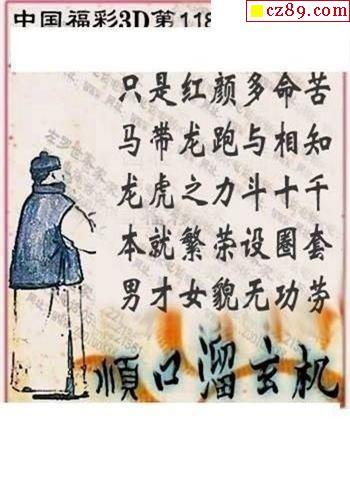 cz89.com
中国福彩3D第118
只是红颜多命苦
马带龙跑与相知
龙虎之力斗十千
本就繁荣设圈套
男才女貌无功劳
順口溜玄机